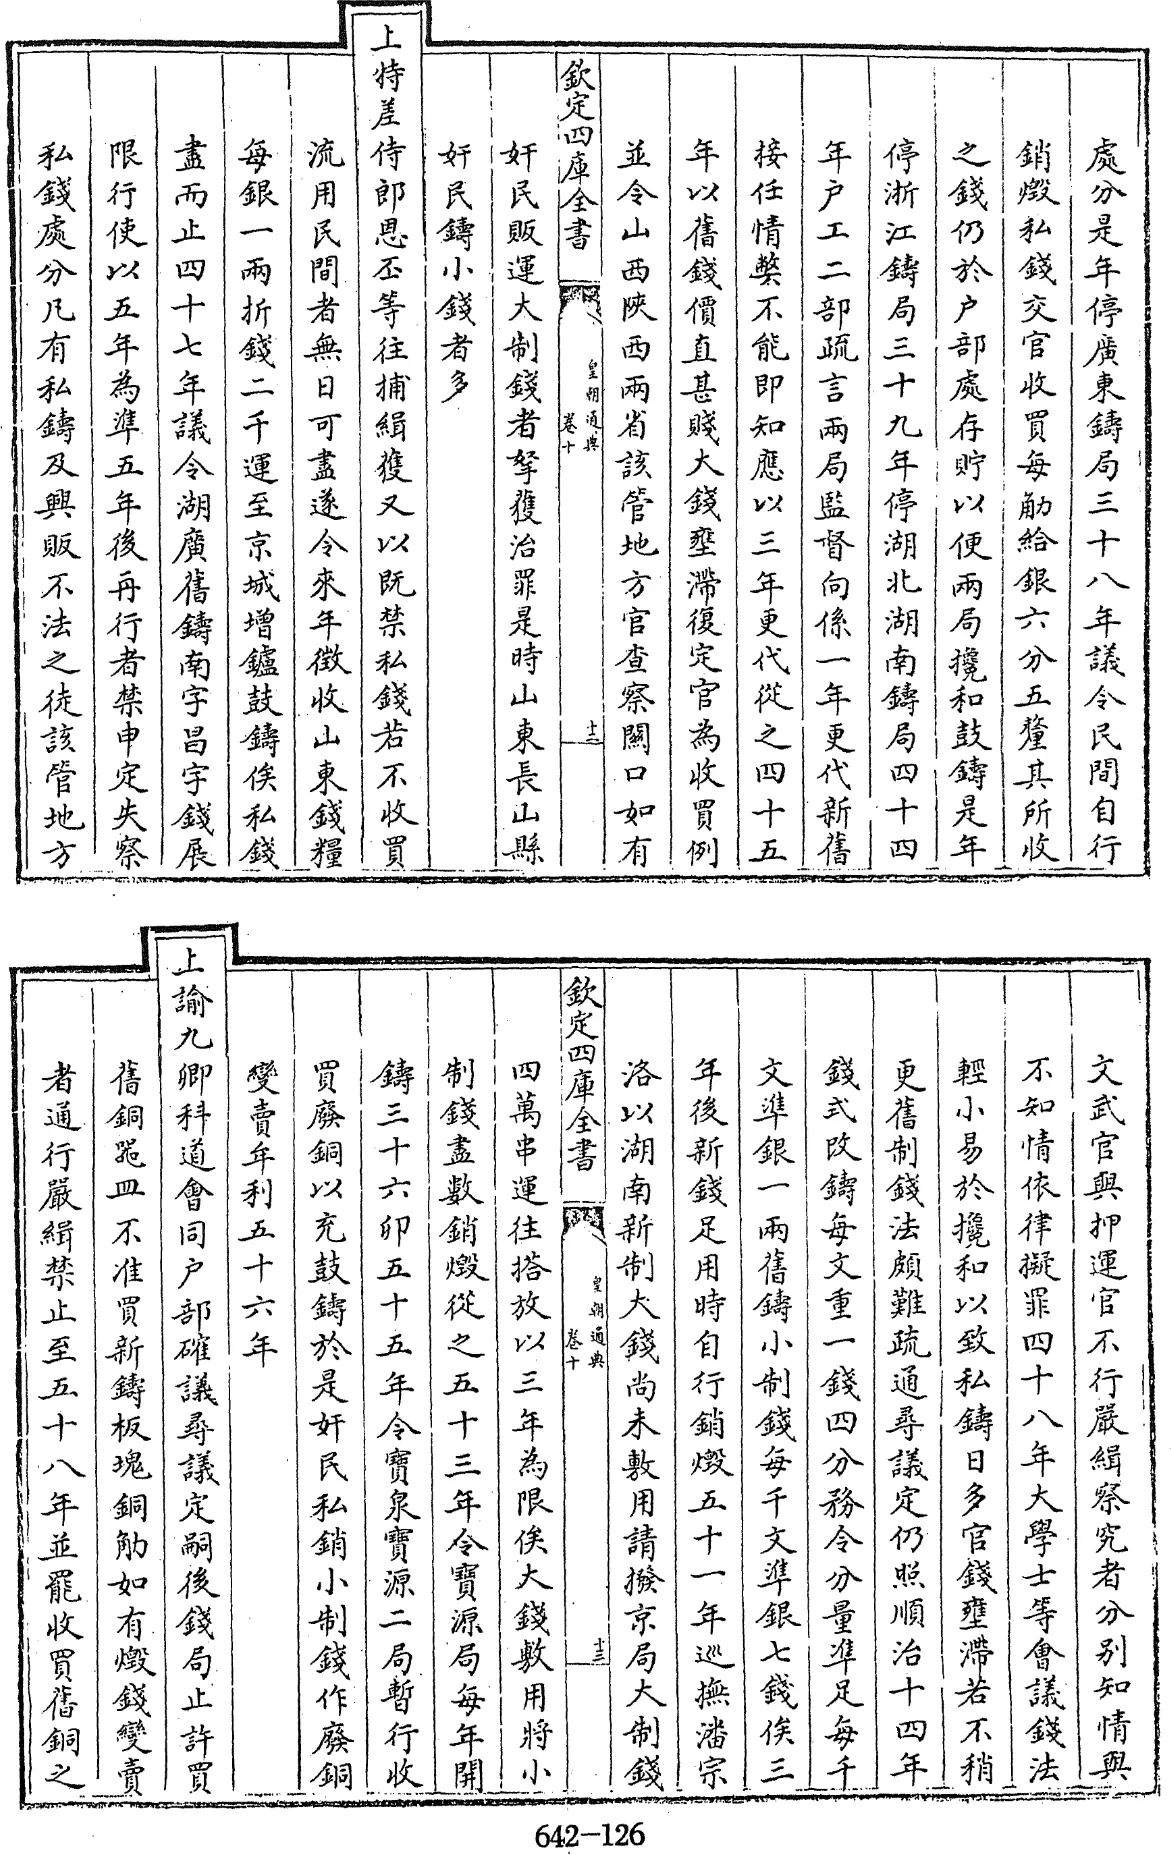 處分是年停廣東鑄局三十八年議令民間自行
銷燬私錢交官收買每觔給銀六分五釐其所收
之錢仍於户部處存貯以便兩局攙和鼓鑄是年
停浙江鑄局三十九年停湖北湖南鑄局四十四
年户工二部疏言兩局監督向係一年更代新舊
接任情獘不能即知應以三年更代從之四十五
年以舊錢價直甚賤大錢壅滯復定官為收買例
並令山西陜西兩省該管地方官查察關口如有
欽定四庫全書
皇朝通典
卷十
十二
奸民販運大制錢者拏獲治罪是時山東長山縣
奸民鑄小錢者多
上特差侍郎恩丕等往捕緝獲又以既禁私錢若不收買
流用民間者無日可盡遂令來年徵收山東錢糧
每銀一兩折錢二千運至京城增鑪鼓鑄俟私錢
盡而止四十七年議令湖廣舊鑄南字昌字錢展
限行使以五年為準五年後再行者禁申定失察
私錢處分凡有私鑄及興販不法之徒該管地方
文武官與押運官不行嚴緝察究者分别知情與
不知情依律擬罪四十八年大學士等會議錢法
輕小易於攙和以致私鑄日多官錢壅滯若不稍
更舊制錢法頗難疏通尋議定仍照順治十四年
錢式改鑄每文重一錢四分務令分量準足每千
文準銀一兩舊鑄小制錢每千文準銀七錢俟三
年後新錢足用時自行銷燬五十一年巡撫潘宗
洛以湖南新制大錢尚未敷用請撥京局大制錢
欽定四庫全書
皇朝通典
卷十
十三
四萬串運往搭放以三年為限俟大錢敷用將小
制錢盡數銷燬從之五十三年令寶源局每年開
鑄三十六卯五十五年令寶泉寶源二局暫行收
買廢銅以充鼓鑄於是奸民私銷小制錢作廢銅
變賣年利五十六年
上諭九卿科道會同户部確議尋議定嗣後錢局止許買
舊銅器皿不准買新鑄板塊銅觔如有燬錢變賣
者通行嚴緝禁止至五十八年並罷收買舊銅之
642-126